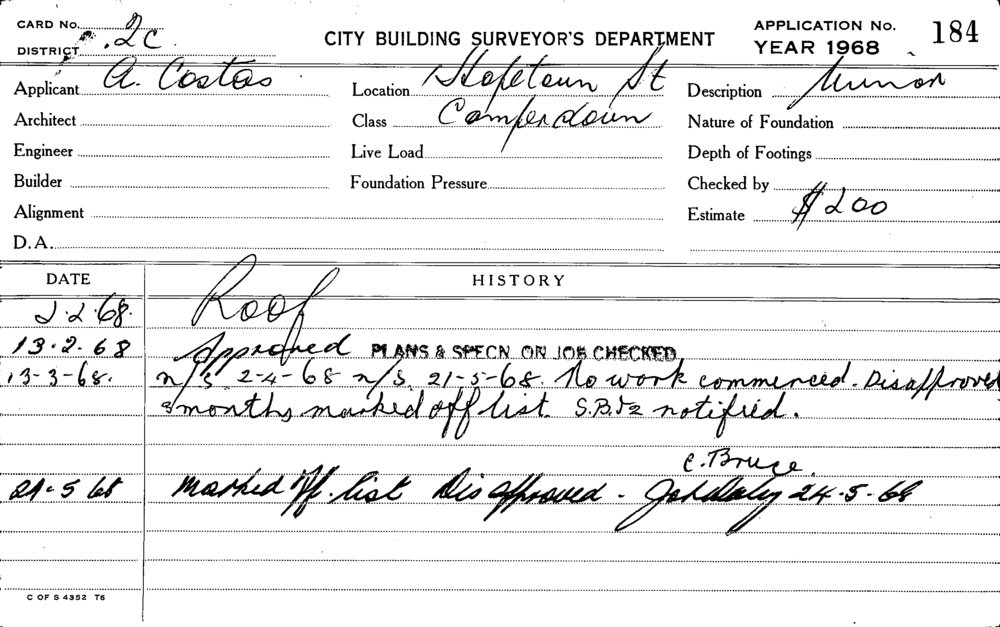 CARD No. APPLICATION No. 184
DISTRICT 2c CITY BUILDING SURVEYOR'S DEPARTMENT YEAR 1968
Applicant A. Costas Location Hopetoun St Description Minor
Architect Class Camperdown Nature of Foundation
Engineer Live Load Depth of Footings
Builder Foundation Pressure Checked by
Alignment Estimate $200
D.A.
DATE HISTORY
2.2.68. Roof
13.2.68 Approved PLANS & SPECN. ON JOB CHECKED
13-3-68. n/s. 2-4-68 n/s. 21-5-68. No work commenced. Disapproved
3 months marked off list. S.B.I2 notified.
C. Bruce.
21-5 68 Marked Off. list Disapproved - 24-5-68
C OF S 4352 T6